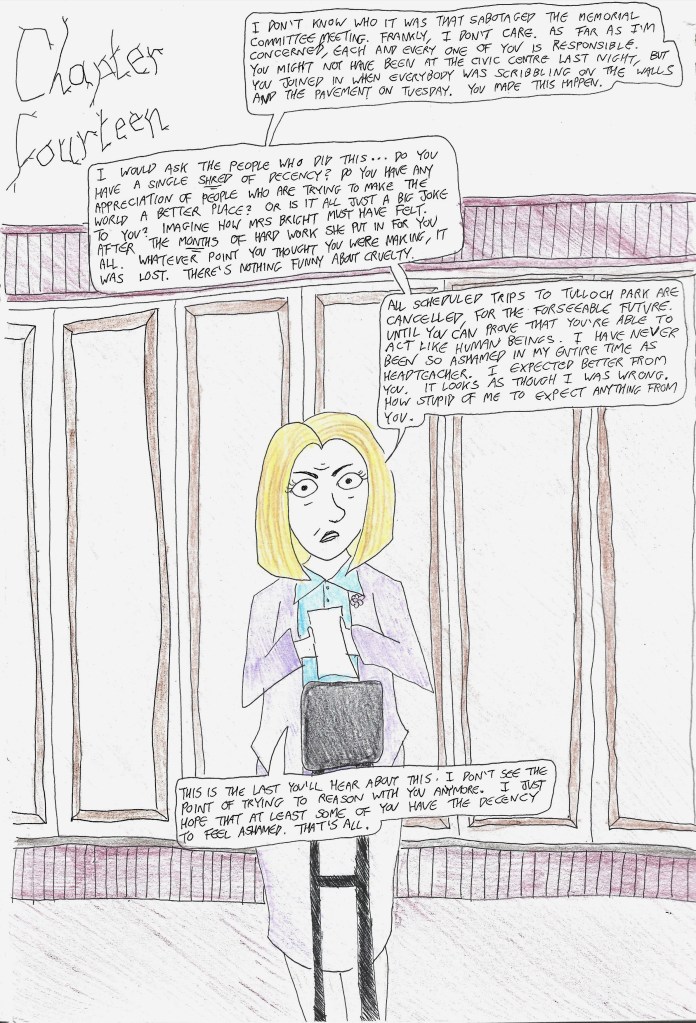 Chapter
Fourteen
I DON'T KNOW WHO IT WAS THAT SABOTAGED THE MEMORIAL
COMMITTEE MEETING. FRANKLY, I DON'T CARE. AS FAR AS I'M
CONCERNED, EACH AND EVERY ONE OF YOU IS RESPONSIBLE.
YOU MIGHT NOT HAVE BEEN AT THE CIVIC CENTRE LAST NIGHT, BUT
YOU JOINED IN WHEN EVERYBODY WAS SCRIBBLING ON THE WALLS
AND THE PAVEMENT ON TUESDAY. YOU MADE THIS HAPPEN.
I WOULD ASK THE PEOPLE WHO DID THIS... DO YOU
HAVE A SINGLE SHRED OF DECENCY? DO YOU HAVE ANY
APPRECIATION OF PEOPLE WHO ARE TRYING TO MAKE THE
WORLD A BETTER PLACE? OR IS IT ALL JUST A BIG JOKE
TO YOU? IMAGINE HOW MRS BRIGHT MUST HAVE FELT.
AFTER THE MONTHS OF HARD WORK SHE PUT IN FOR YOU
ALL. WHATEVER POINT YOU THOUGHT YOU WERE MAKING, IT
WAS LOST. THERE'S NOTHING FUNNY ABOUT CRUELTY.
ALL SCHEDULED TRIPS TO TULLOCH PARK ARE
CANCELLED, FOR THE FORSEEABLE FUTURE.
UNTIL YOU CAN PROVE THAT YOU'RE ABLE TO
ACT LIKE HUMAN BEINGS. I HAVE NEVER
BEEN SO ASHAMED IN MY ENTIRE TIME AS
HEADTEACHER. I EXPECTED BETTER FROM
YOU. IT LOOKS AS THOUGH I WAS WRONG.
HOW STUPID OF ME TO EXPECT ANYTHING FROM
YOU.
THIS IS THE LAST YOU'LL HEAR ABOUT THIS. I DON'T SEE THE
POINT OF TRYING TO REASON WITH YOU ANYMORE. I JUST
HOPE THAT AT LEAST SOME OF YOU HAVE THE DECENCY
TO FEEL ASHAMED. THAT'S ALL.